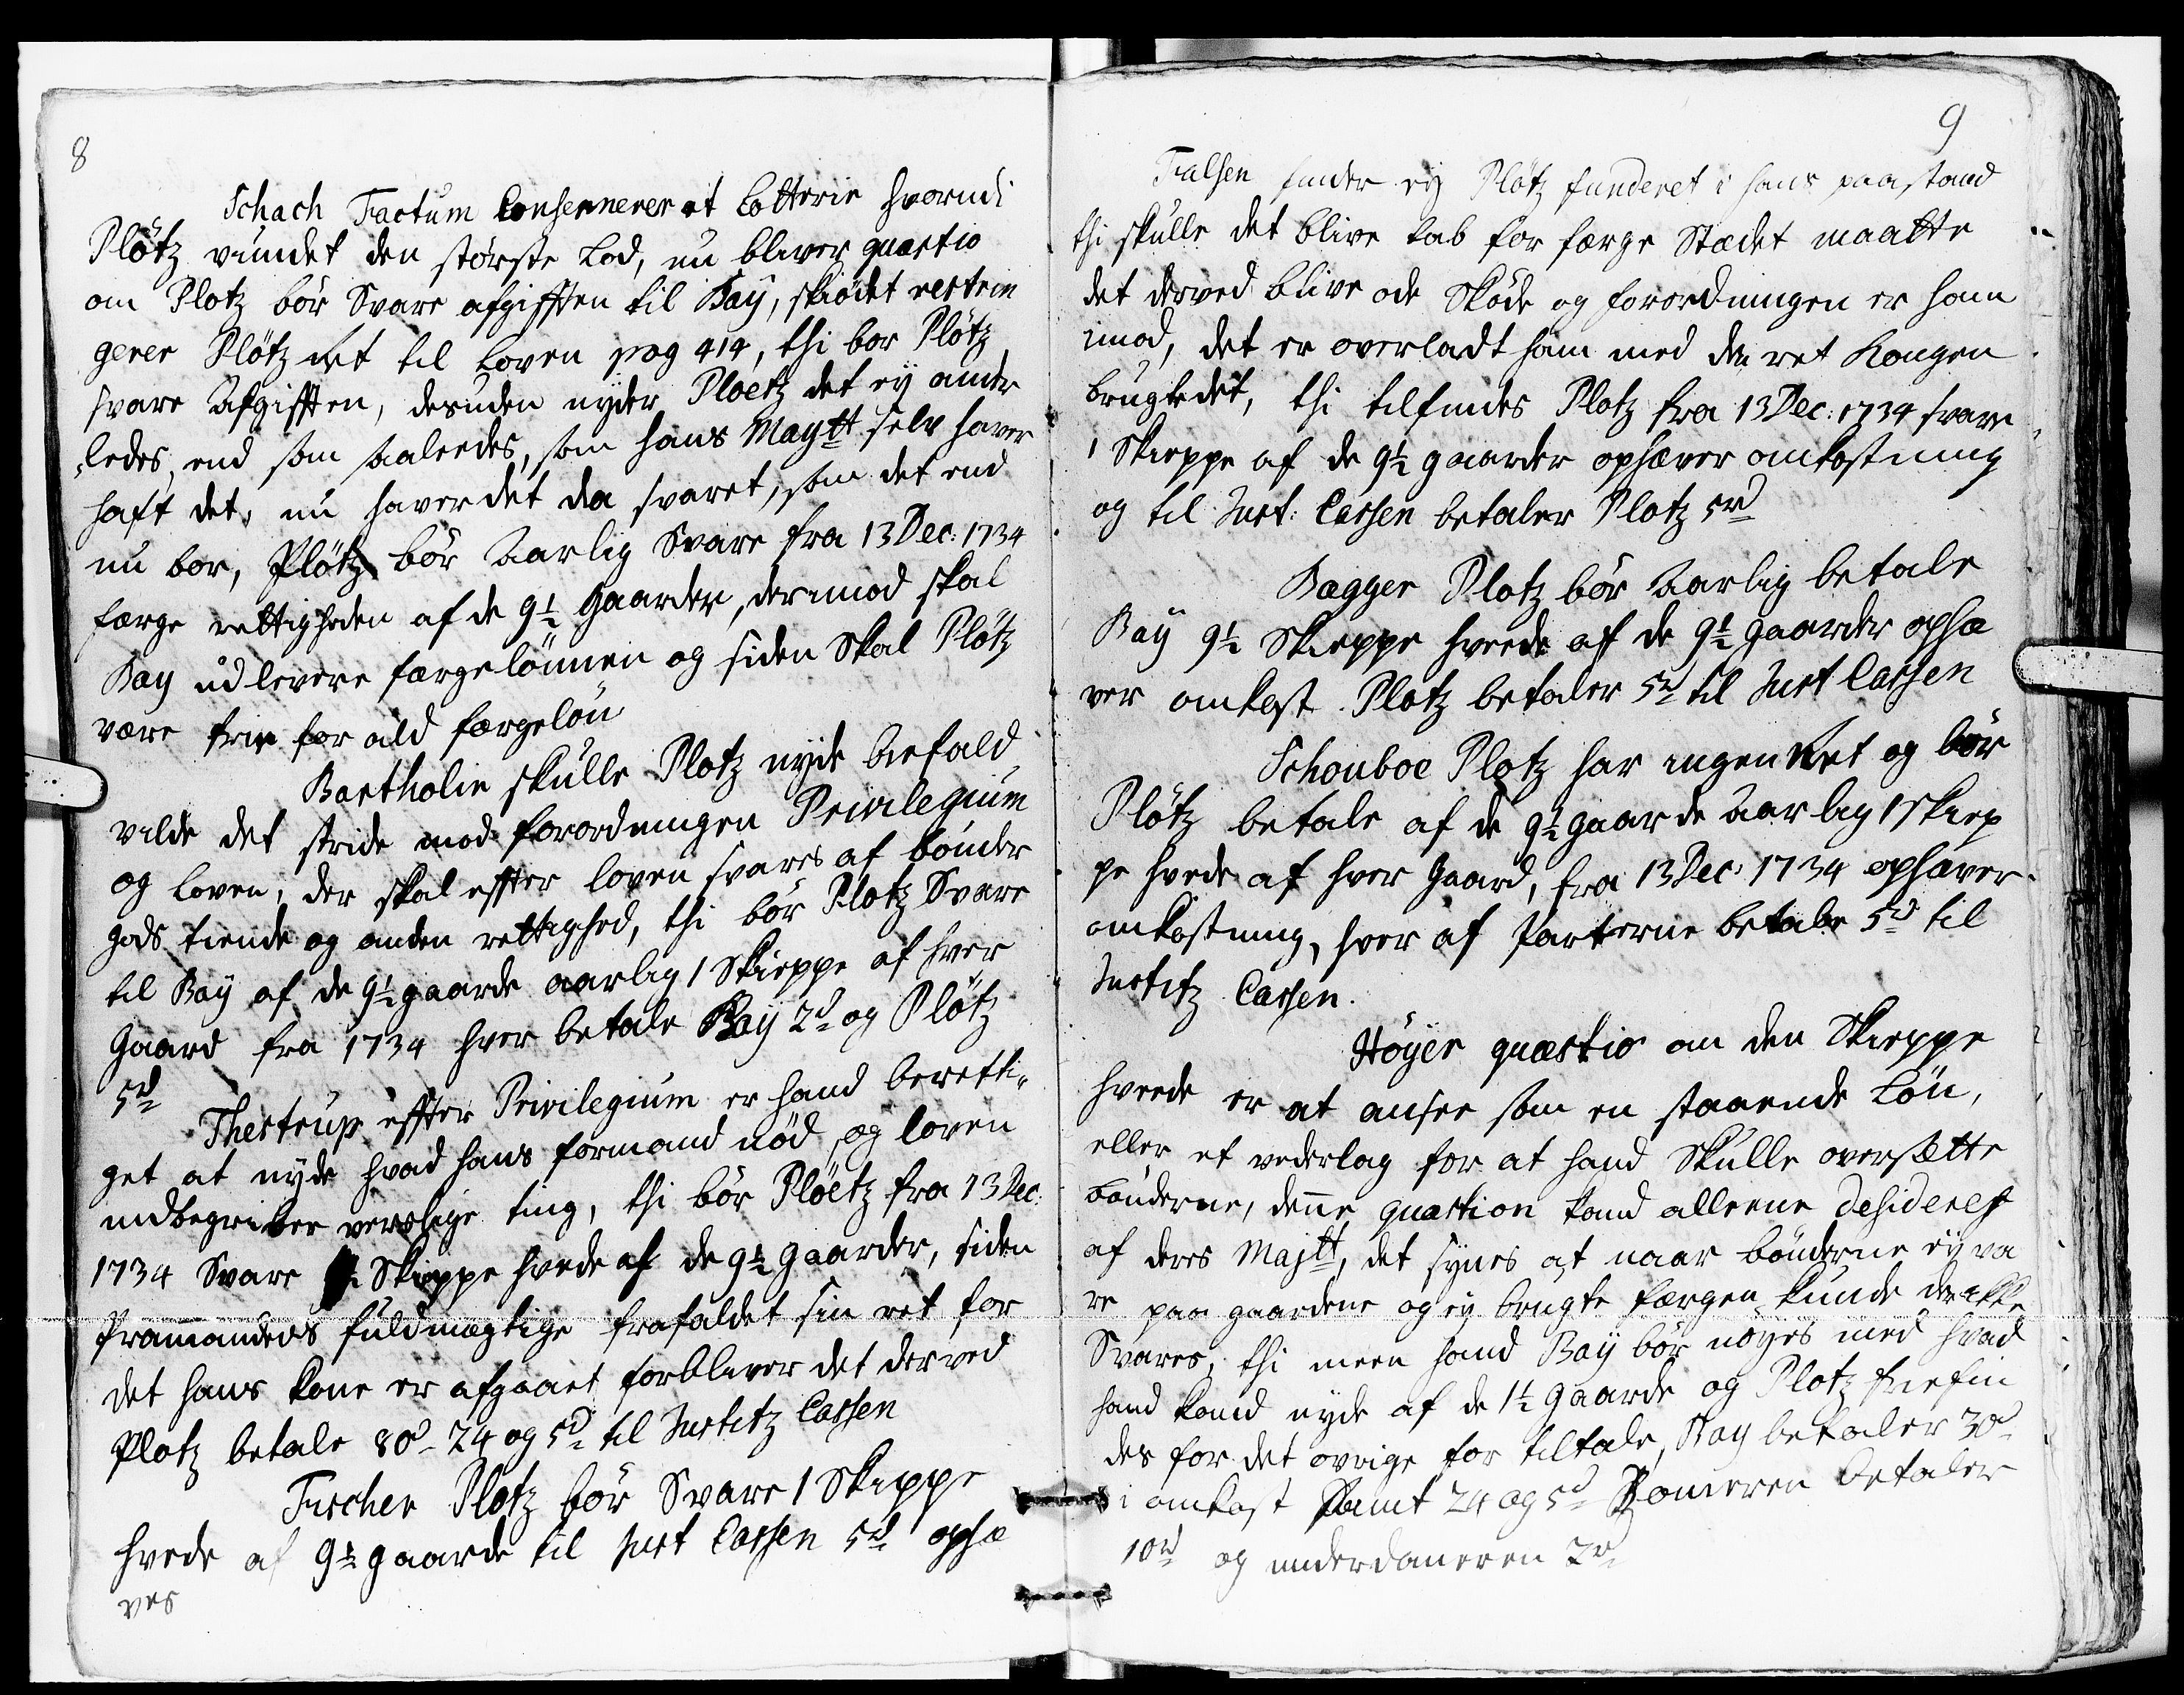 8
Schach Factum Consernerer et Lotterie hvorudi
Plötz vundet den störste Lod, nu bliver quæstio
om Plotz bör Svare afgifften til Bay, skiödet restrin
gerer Plötz ret til Loven pag 414, thi bor Plötz
svare Afgifften, desuden nyder Ploetz det ey ander
„ledes, end som saaleedes, som hans Maytt selv haver
haft det, nu haver det da svaret, som det end
nu bor, Plötz bör Aarlig Svare fra 13 Dec: 1734
færge rettigheden af de 9½ Gaarder, derimod skal
Bay udlevere færgelönnen og siden Skal Plötz
være frie for ald færgelön
Bartholin skulle Plotz nyde biefald
vilde det stride mod forordningen Privilegium
og Loven, der skal effter loven svares af bönder
gods tiende og anden rettighed, thi bör Plotz Svare
til Bay af de 9½ gaarde aarlig 1 Skieppe af hver
Gaard fra 1734 hver betale Bay 2d og Plötz
5d
Thestrup effter Privilegium er hand beretti„
get at nyde hvad hans formand nöd, og loven
indbegriber verslige ting, thi bör Plöetz fra 13 Dec:
1734 Svare Skieppe hvede af de 9½ gaarder, siden
Pramandens fuldmægtige frafaldet sin ret for
det hans kone er afgaaet forbliver det derved
Plotz betale 80d 24 og 5d til Justitz Cassen
Fischer Plotz bör Svare 1 Skieppe
hvede af 9½ gaarde til Just Cassen 5d ophæ
ves
9
Falsen finder ey Plötz funderet i hans paastand
thi skulle det blive tab for færge Stædet maatte
det derved blive ode Sköde og forordningen er ham
imod, det er overladt ham med den ret Kongen
brugte det, thi tilfindes Plotz fra 13 Dec: 1734 svare
1 Skieppe af de 9½ gaarder ophæver omkostning
og til Just: Cassen betaler Plotz 5rd
Bagger Plotz bör Aarlig betale
Bay 9½ Skieppe hveede af de 9½ gaarder ophæ
ver omkost. Plotz betaler 5d til Just Cassen
Schouboe Plotz har ingen Ret og bör
Plötz betale af de 9½ gaarde Aarlig 1 skiep
pe hvede af hver Gaard, fra 13 Dec: 1734 ophæver
omkostning, hver af Parterne betale 5d til
Justitz Cassen.
Höyer quæstio om den Skieppe
hveede er at ansee som en staaende Lön,
eller et vederlag for at hand Skulle oversætte
bönderne, denne quæstion kand alleene desideres
af deres Majtt, det synes at naar bönderne ey va
re paa gaardene og ey brugte færgen kunde der ikke
Svares, thi meen hand Bay bör nöyes med hvad
hand kand nyde af de 1½ Gaarde og Plotz friefin
des for det ovrige for tiltale, Bay betaler 30d
i omkost Samt 24 og 5d betaler
10rd og underdaneren 2rd